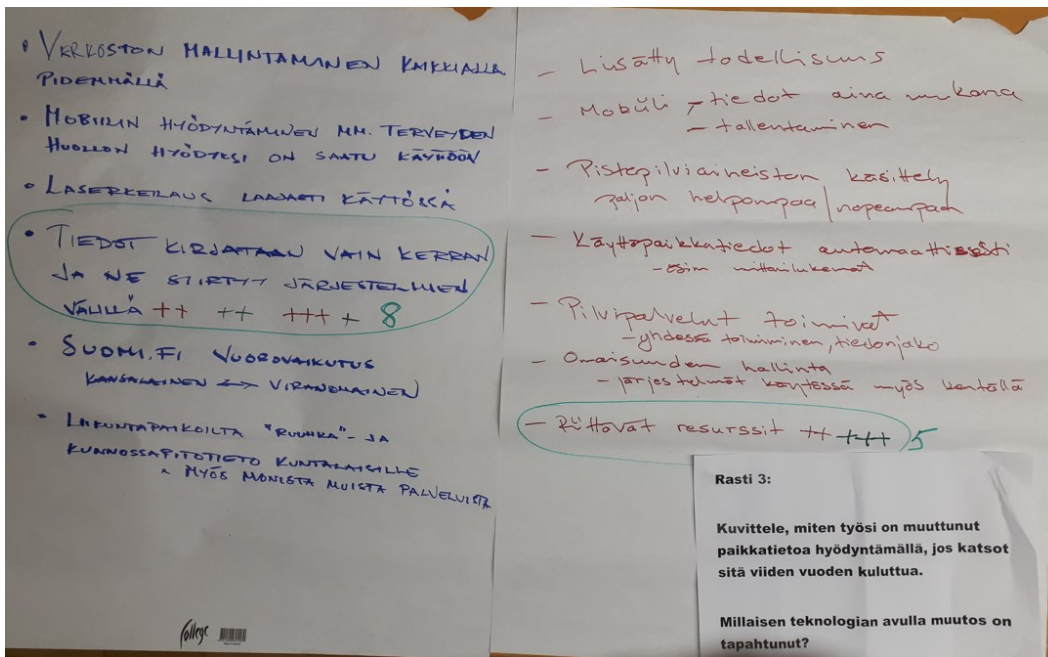 • VERKOSTON MALLINTAMINEN KAIKKIALLA
PIDEMMÄLLÄ
• MOBIILIN HYÖDYNTÄMINEN MM. TERVEYDEN
HUOLLON HYÖDYKSI ON SAATU KÄYTTÖÖN
• LASERKEILAUS LAAJASTI KÄYTÖSSÄ
• TIEDOT KIRJATAAN VAIN KERRAN
JA NE SIIRTYY JÄRJESTELMIEN
VÄLILLÄ ++ ++ +++ + 8
• SUOMI.FI VUOROVAIKUTUS
KANSALAINEN <-> VIRANOMAINEN
• LIIKUNTAPAIKOILTA "RUUHKA"- JA
KUNNOSSAPITOTIETO KUNTALAISILLE
MYÖS MONISTA MUISTA PALVELUISTA
College
- Lisätty todellisuus
- Mobiili - tiedot aina mukana
- tallentaminen
- Pistepilviaineiston käsittely
paljon helpompaa / nopeampaa
- Käyttöpaikkatiedot automaattisesti
- esim mittarilukemat
- Pilvipalvelut toimivat
- yhdessä toimiminen, tiedonjako
- Omaisuuden hallinta
- järjestelmät käytössä myös kentällä
- Riittävät resurssit ++ +++ 5
Rasti 3:
Kuvittele, miten työsi on muuttunut
paikkatietoa hyödyntämällä, jos katsot
sitä viiden vuoden kuluttua.
Millaisen teknologian avulla muutos on
tapahtunut?